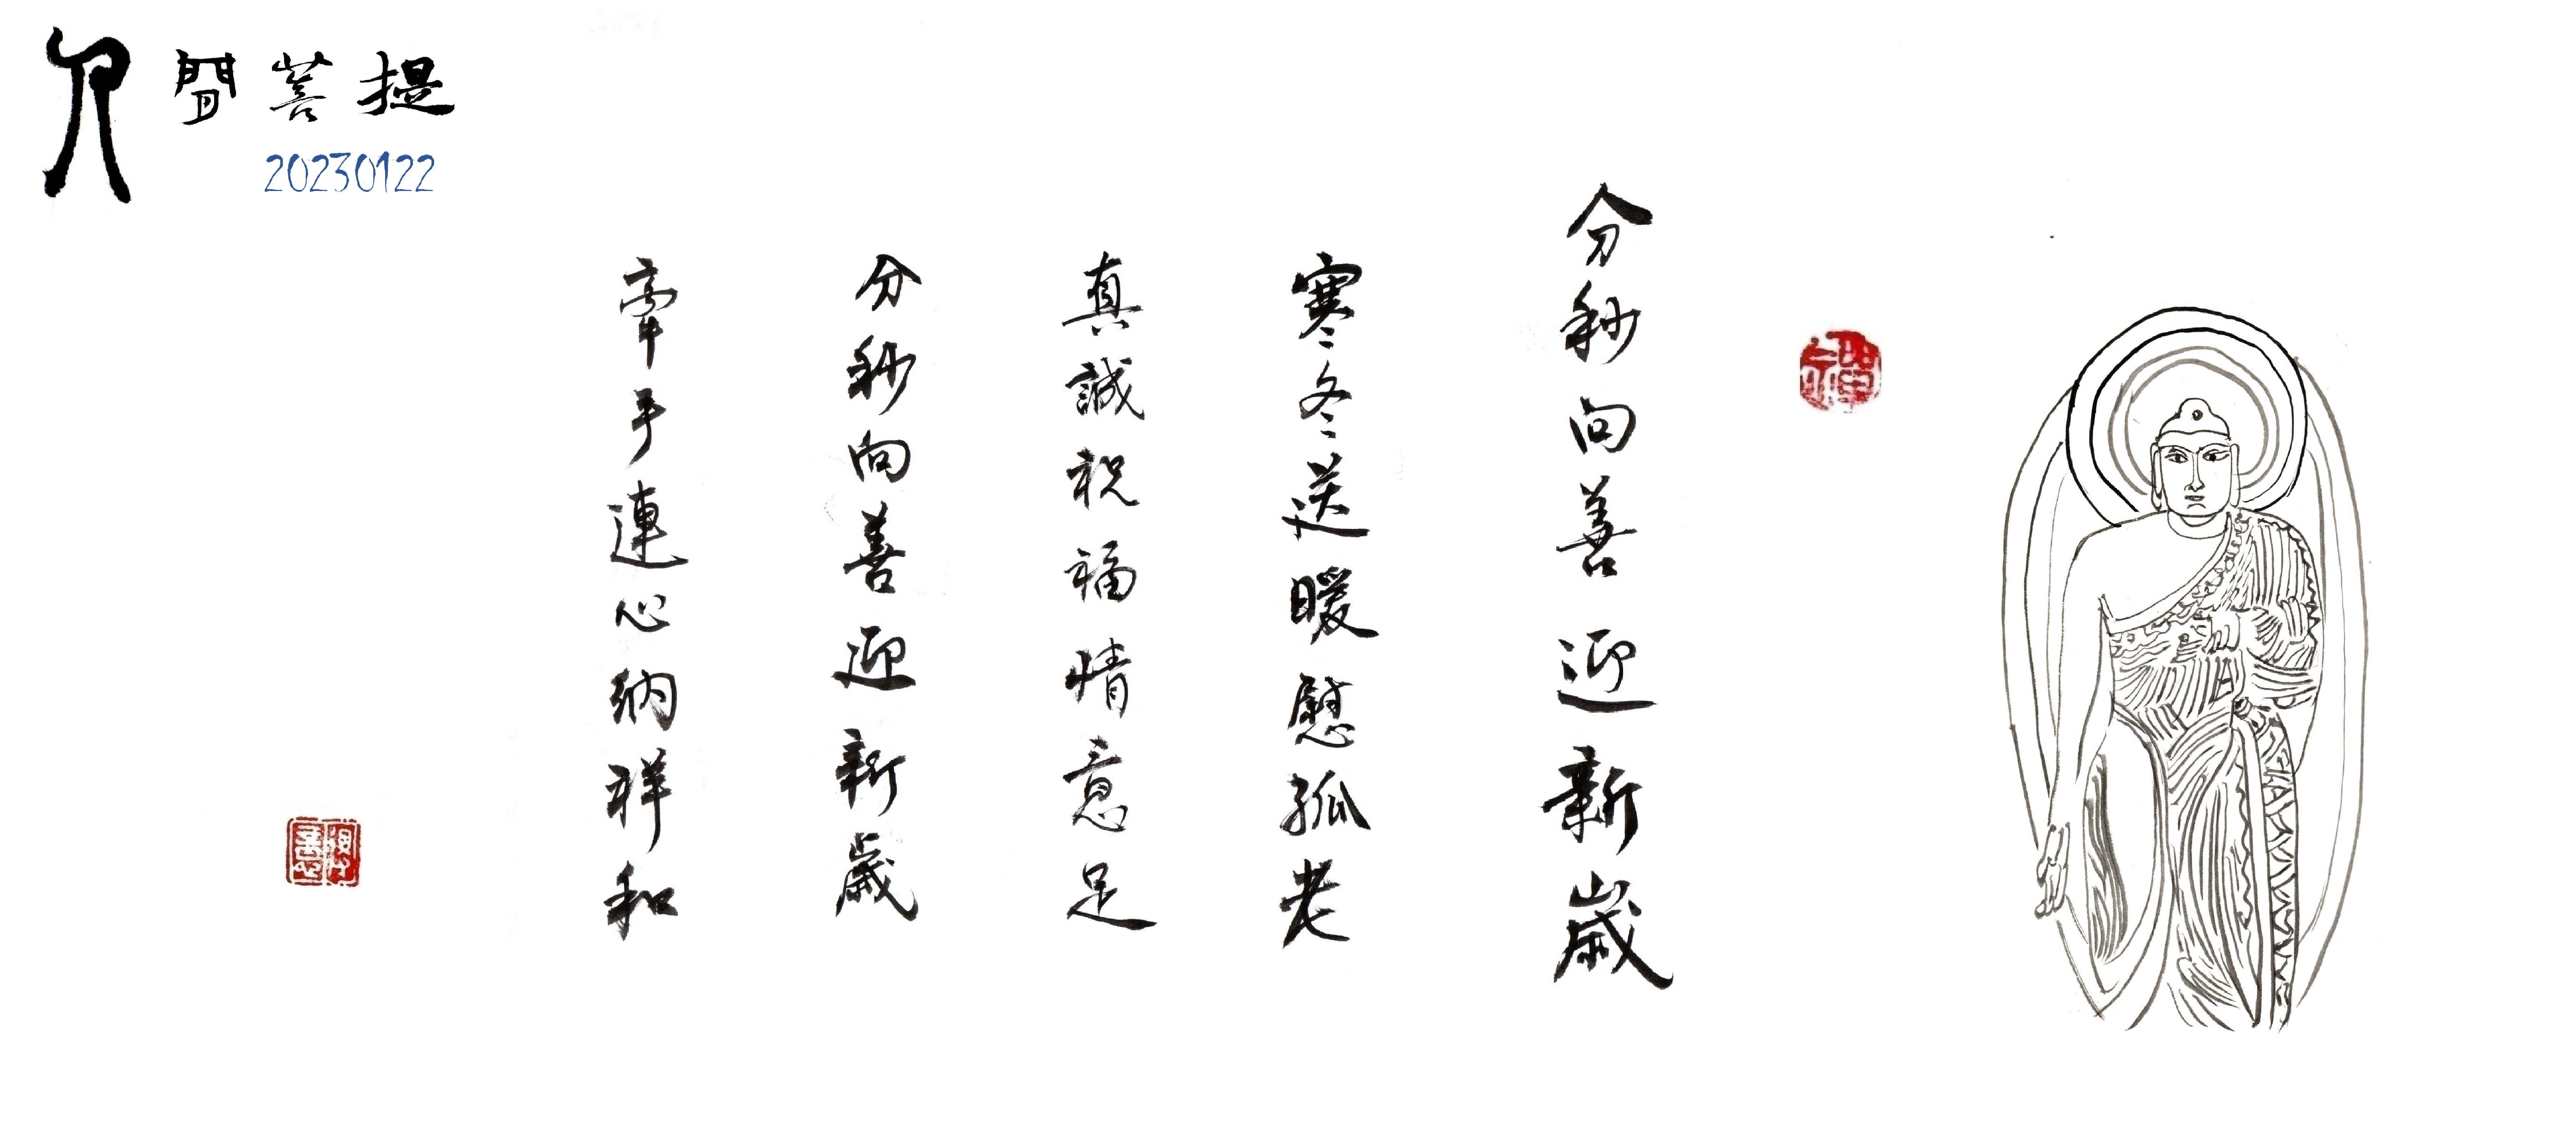 人間菩提
20230122
分秒向善迎新歲
寒冬送暖慰孤老
真誠祝福情意足
分秒向善迎新歲
牽手連心納祥和
禪